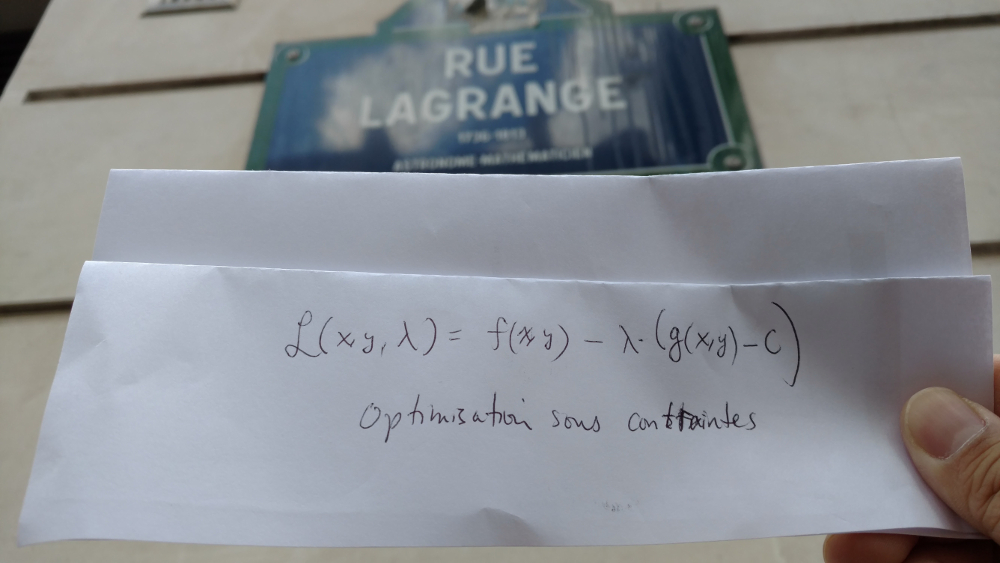 RUE
LAGRANGE
1736-1813
ASTRONOME MATHÉMATICIEN
ℒ(x,y,λ) = f(x,y) − λ·(g(x,y)−C)
Optimisation sous contraintes